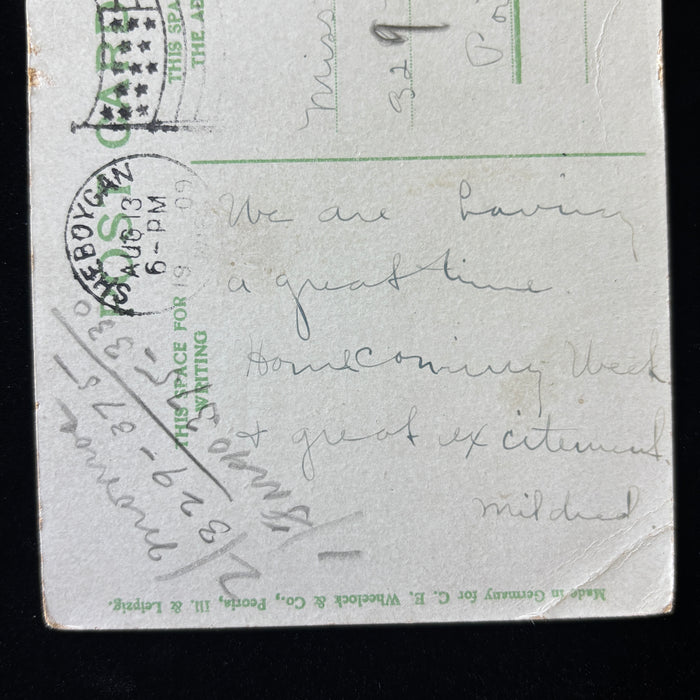 POST CARD
THIS SPA
THE AD
Miss
329
Po
SHEBOYGAN
AUG 13
6-PM
1909
THIS SPACE FOR
WRITING
We are having
a great time.
Homecoming Week
+ great excitement.
Mildred.
329-375-330
Made in Germany for C. E. Wheelock & Co., Peoria, Ill. & Leipzig.